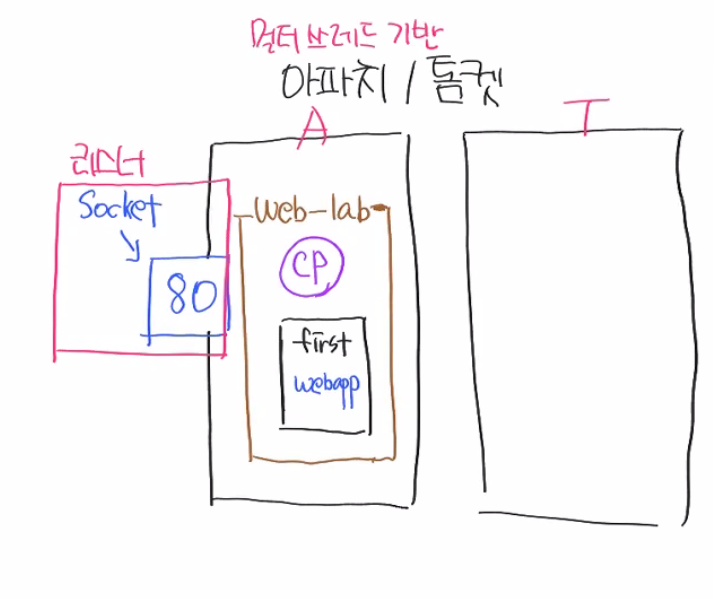 멀티 쓰레드 기반
아파치 / 톰켓
A
T
리스너
Socket
80
web-lab
CP
first
webapp